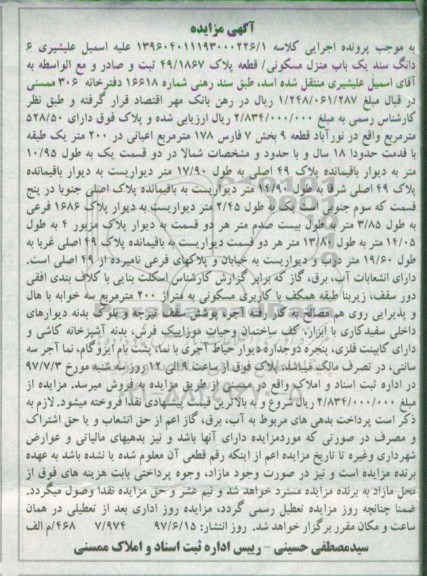 آگهی مزایده
به موجب پرونده اجرایی کلاسه ۱۳۹۶۰۴۰۱۱۱۹۳۰۰۰۲۲۶/۱ علیه اسمیل علیشیری ۶
دانگ سند یک باب منزل مسکونی/ قطعه پلاک ۴۹/۱۸۶۷ ثبت و صادر و مع الواسطه به
آقای اسمیل علیشیری منتقل شده اسد، طبق سند رهنی شماره ۱۶۶۱۸ دفترخانه ۳۰۶ ممسنی
در قبال مبلغ ۱/۲۴۸/۰۶۱/۲۸۷ ریال در رهن بانک مهر اقتصاد قرار گرفته و طبق نظر
کارشناس رسمی به مبلغ ۲/۸۳۴/۰۰۰/۰۰۰ ریال ارزیابی شده و پلاک فوق دارای ۵۲۸/۵۰
مترمربع واقع در نورآباد قطعه ۹ بخش ۷ فارس ۱۷۸ مترمربع اعیانی در ۲۰۰ متر یک طبقه
با قدمت حدودا ۱۸ سال و با حدود و مشخصات شمالا در دو قسمت یک به طول ۱۰/۹۵
متر به دیوار باقیمانده پلاک ۴۹ اصلی به طول ۱۷/۹۰ متر دیواریست به دیوار باقیمانده
پلاک ۴۹ اصلی شرقا به طول ۱۴/۹۰ متر دیواریست به باقیمانده پلاک اصلی جنوبا در پنج
قسمت که سوم جنوبی است یک به طول ۲/۴۵ متر دیواریست به دیوار پلاک ۱۶۸۶ فرعی
به طول ۳/۸۵ متر به طول بیست صدم متر هر دو قسمت به دیوار پلاک مزبور ۴ به طول
۱۴/۰۵ متر به طول ۱۳/۸۰ متر هر دو قسمت دیواریست به باقیمانده پلاک ۴۹ اصلی غربا به
طول ۱۹/۶۰ متر درب و دیواریست به خیابان و پلاکهای فوعی نامبرده از ۴۹ اصلی است.
دارای انشعابات آب، برق، گاز که برابر گزارش کارشناس اسکلت بنایی با کلاف بندی افقی
دور سقف، زیربنا طبقه همکف با کاربری مسکونی به متراژ ۲۰۰ مترمربع سه خوابه با هال
و پذیرایی روی هم مصالح به کار رفته آجر، پوشش سقف تیرچه و بلوک بدنه دیوارهای
داخلی سفیدکاری با ابزار، کف ساختمان وحیاط موزاییک فرش، بدنه آشپزخانه کاشی و
دارای کابینت فلزی، پنجره دوجداره دیوار حیاط آجری با نما، پشت بام ایزوگام، نما آجر سه
سانتی، در تصرف مالک میباشد. پلاک فوق از ساعت ۹ الی ۱۲ روز سه شنبه مورخ ۹۷/۷/۳
در اداره ثبت اسناد و املاک واقع در ممسنی از طریق مزایده به فروش میرسد. مزایده از
مبلغ ۲/۸۳۴/۰۰۰/۰۰۰ ریال شروع و به بالاترین قیمت پیشنهادی نقدا فروخته میشود. لازم به
ذکر است پرداخت بدهی های مربوط به آب، برق، گاز اعم از حق انشعاب و یا حق اشتراک
و مصرف در صورتی که موردمزایده دارای آنها باشد و نیز بدهیهای مالیاتی و عوارض
شهرداری وغیره تا تاریخ مزایده اعم از اینکه رقم قطعی آن معلوم شده یا نشده باشد به عهده
برنده مزایده است و نیز در صورت وجود مازاد، وجوه پرداختی بابت هزینه های فوق از
محل مازاد به برنده مزایده مسترد خواهد شد و نیم عشر و حق مزایده نقدا وصول میگردد.
ضمنا چنانچه روز مزایده تعطیل رسمی گردد، مزایده روز اداری بعد از تعطیلی در همان
ساعت و مکان مقرر برگزار خواهد شد. روز انتشار: ۹۷/۶/۱۵ ۷/۹۷۴ ۴۶۸/م الف
سیدمصطفی حسینی - رییس اداره ثبت اسناد و املاک ممسنی